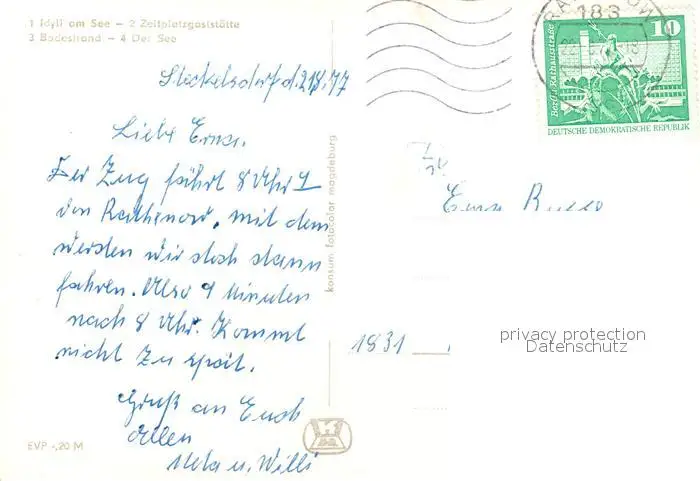 1 Idyll am See – 2 Zeltplatzgaststätte
3 Badestrand – 4 Der See
183
10
Berlin, Rathausstraße
DEUTSCHE DEMOKRATISCHE REPUBLIK
Steckelsdorf d.
Liebe Erna.
Der Zug fährt 8 Uhr 9
von Rathenow, mit dem
werden wir doch dann
fahren. Also 9 Minuten
nach 8 Uhr. Kommt
nicht zu spät.
Gruß an Euch
Allen
Meta u. Willi
konsum fotocolor magdeburg
Erna
1831
privacy protection
Datenschutz
EVP -,20 M